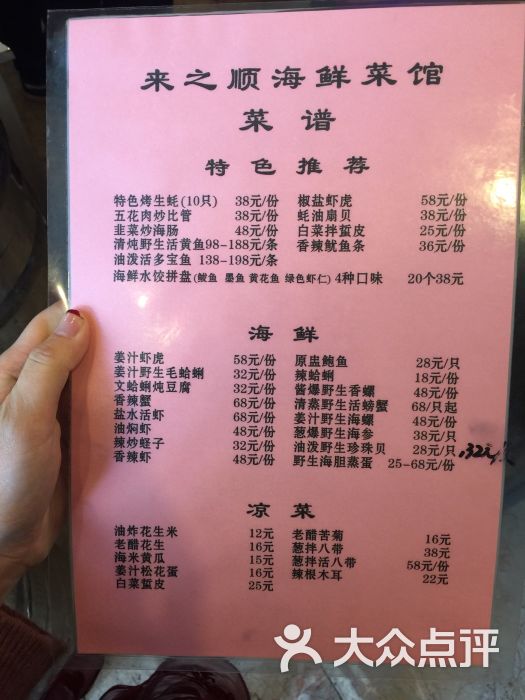 来之顺海鲜菜馆
菜谱
特色推荐
特色烤生蚝(10只) 38元/份 椒盐虾虎 58元/份
五花肉炒比管 38元/份 蚝油扇贝 38元/份
韭菜炒海肠 48元/份 白菜拌蜇皮 25元/份
清炖野生活黄鱼98-188元/条 香辣鱿鱼条 36元/份
油泼活多宝鱼 138-198元/条
海鲜水饺拼盘(鲅鱼 墨鱼 黄花鱼 绿色虾仁) 4种口味 20个38元
海鲜
姜汁虾虎 58元/份 原盅鲍鱼 28元/只
姜汁野生毛蛤蜊 32元/份 辣蛤蜊 18元/份
文蛤蜊炖豆腐 32元/份 酱爆野生香螺 48元/份
香辣蟹 68元/份 清蒸野生活螃蟹 68/只起
盐水活虾 68元/份 姜汁野生海螺 48元/份
油焖虾 48元/份 葱爆野生海参 38元/只
辣炒蛏子 32元/份 油泼野生珍珠贝 28元/只
香辣虾 48元/份 野生海胆蒸蛋 25-68元/份
凉菜
油炸花生米 12元 老醋苦菊 16元
老醋花生 16元 葱拌八带 38元
海米黄瓜 15元 葱拌活八带 58元/份
姜汁松花蛋 16元 辣根木耳 22元
白菜蜇皮 25元
大众点评